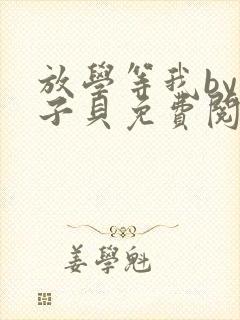 放學等我by
子貝免費閱
姜學魁